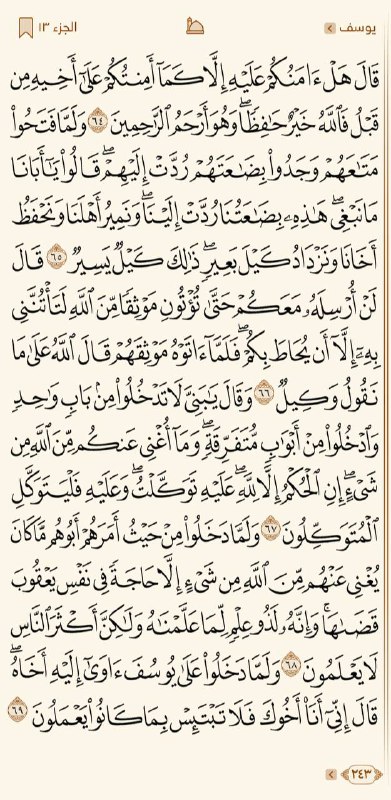 يوسف
الجزء ١٣
قَالَ هَلْ ءَامَنُكُمْ عَلَيْهِ إِلَّا كَمَآ أَمِنتُكُمْ عَلَىٰٓ أَخِيهِ مِن
قَبْلُ فَٱللَّهُ خَيْرٌ حَٰفِظًا ۖ وَهُوَ أَرْحَمُ ٱلرَّٰحِمِينَ ٦٤ وَلَمَّا فَتَحُوا۟
مَتَٰعَهُمْ وَجَدُوا۟ بِضَٰعَتَهُمْ رُدَّتْ إِلَيْهِمْ ۖ قَالُوا۟ يَٰٓأَبَانَا
مَا نَبْغِى ۖ هَٰذِهِۦ بِضَٰعَتُنَا رُدَّتْ إِلَيْنَا ۖ وَنَمِيرُ أَهْلَنَا وَنَحْفَظُ
أَخَانَا وَنَزْدَادُ كَيْلَ بَعِيرٍ ۖ ذَٰلِكَ كَيْلٌ يَسِيرٌ ٦٥ قَالَ
لَنْ أُرْسِلَهُۥ مَعَكُمْ حَتَّىٰ تُؤْتُونِ مَوْثِقًا مِّنَ ٱللَّهِ لَتَأْتُنَّنِى
بِهِۦٓ إِلَّآ أَن يُحَاطَ بِكُمْ ۖ فَلَمَّآ ءَاتَوْهُ مَوْثِقَهُمْ قَالَ ٱللَّهُ عَلَىٰ مَا
نَقُولُ وَكِيلٌ ٦٦ وَقَالَ يَٰبَنِىَّ لَا تَدْخُلُوا۟ مِنۢ بَابٍ وَٰحِدٍ
وَٱدْخُلُوا۟ مِنْ أَبْوَٰبٍ مُّتَفَرِّقَةٍ ۖ وَمَآ أُغْنِى عَنكُم مِّنَ ٱللَّهِ مِن
شَىْءٍ ۖ إِنِ ٱلْحُكْمُ إِلَّا لِلَّهِ ۖ عَلَيْهِ تَوَكَّلْتُ ۖ وَعَلَيْهِ فَلْيَتَوَكَّلِ
ٱلْمُتَوَكِّلُونَ ٦٧ وَلَمَّا دَخَلُوا۟ مِنْ حَيْثُ أَمَرَهُمْ أَبُوهُم مَّا كَانَ
يُغْنِى عَنْهُم مِّنَ ٱللَّهِ مِن شَىْءٍ إِلَّا حَاجَةً فِى نَفْسِ يَعْقُوبَ
قَضَىٰهَا ۚ وَإِنَّهُۥ لَذُو عِلْمٍ لِّمَا عَلَّمْنَٰهُ وَلَٰكِنَّ أَكْثَرَ ٱلنَّاسِ
لَا يَعْلَمُونَ ٦٨ وَلَمَّا دَخَلُوا۟ عَلَىٰ يُوسُفَ ءَاوَىٰٓ إِلَيْهِ أَخَاهُ ۖ
قَالَ إِنِّىٓ أَنَا۠ أَخُوكَ فَلَا تَبْتَئِسْ بِمَا كَانُوا۟ يَعْمَلُونَ ٦٩
٢٤٣